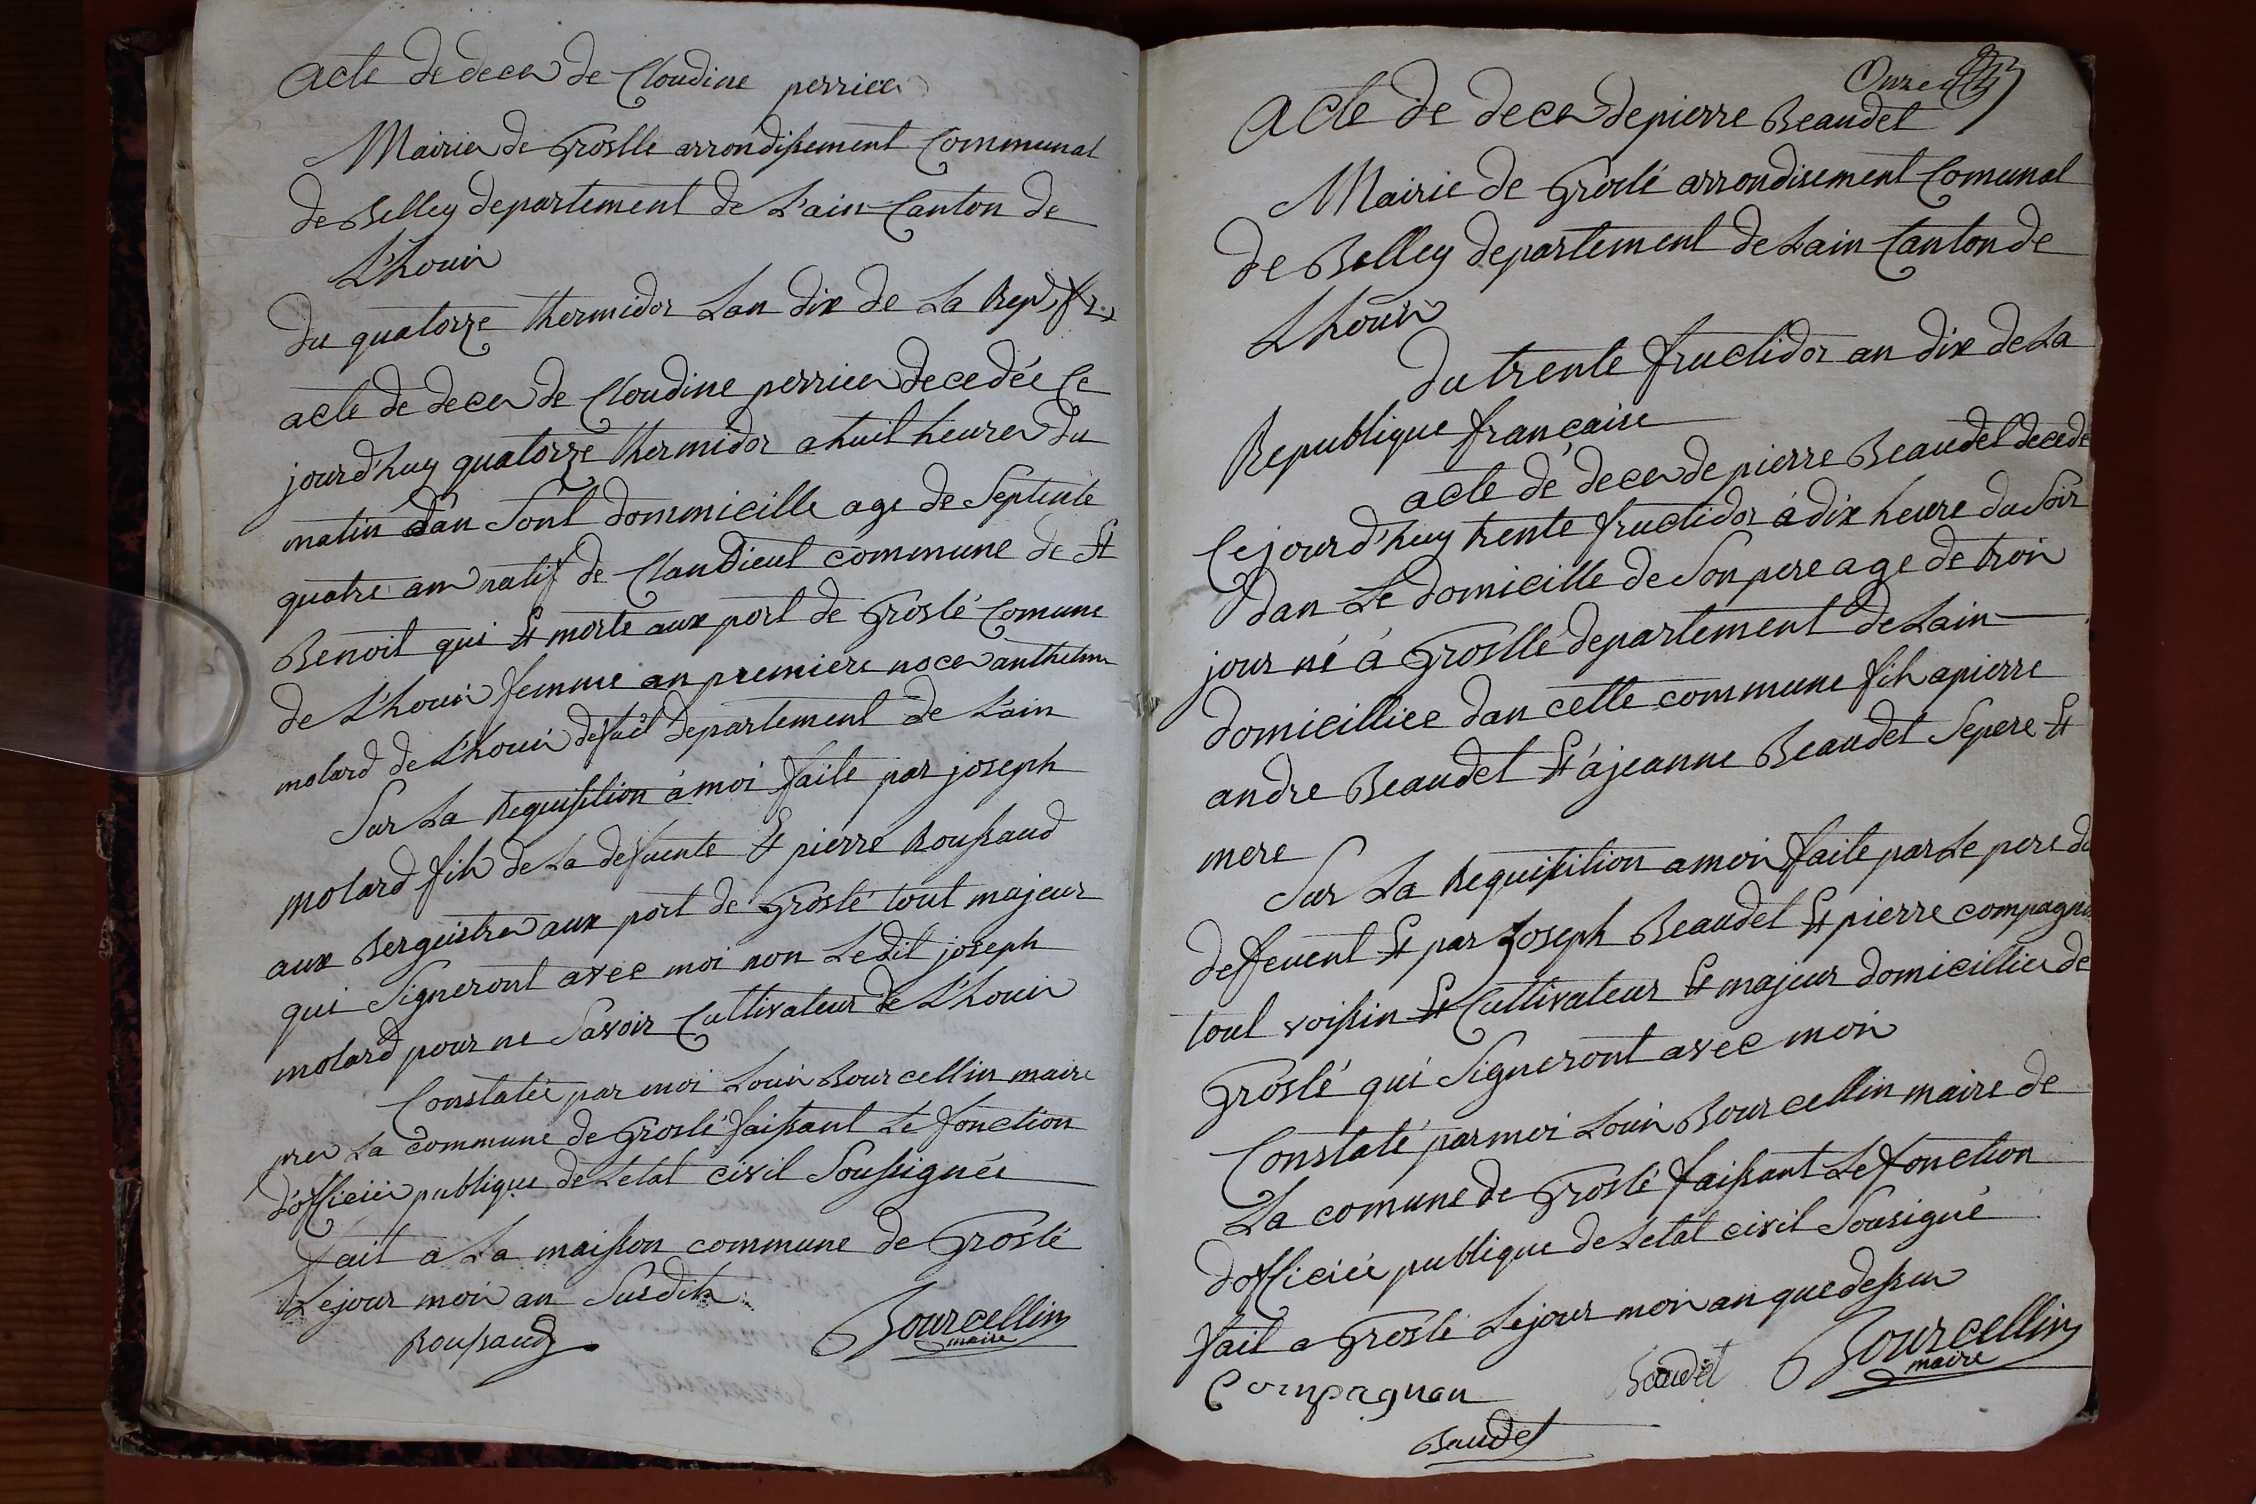 acte de deces de Cloudine perrier
Mairie de Groslle arrondissement Communal
de Belley departement de L'ain Canton de
L'houis
du quatorze thermidor Lan dix de La Rep. fr.
acte de deces de Cloudine perrier decedée Ce
jourd'huy quatorze thermidor a huit heures du
matin dan Sont dommicille age de Septente
quatre ans natif de Claudieut commune de St
Benoit qui Et morte aux port de Groslé Comune
de L'houis femme an premiere noces anthelme
molard de L'houis defuct departement de L'ain
Sur La Requisition à moi faite par joseph
molard fils de La defuente Et pierre Roussaud
aux Berguistres aux port de Groslé tout majeur
qui Signeront avec moi non Ledit joseph
molard pour ne Savoir Cultivateur de L'houis
Constatée par moi Louis Bourcellin maire
pres La commune de Groslé faissant Le fonction
d'officiée publique de Letat civil Soussignée
fait a La maisson commune de Groslé
Lejour mois an Susdits
Roussaud Bourcellin
maire
Onze
acte de deces de pierre Beaudet
Mairie de Groslé arrondisement Comunal
de Belley departement de Lain Canton de
Lhouis
du trente fructidor an dix de La
Republique française
acte de deces de pierre Beaudet decede
Cejourd'huy trente fructidor à dix heure du Soir
dan Le domicille de Son pere age de trois
jour né à Groslle departement de Lain
domicilliee dan cette commune fils a pierre
andre Beaudet Et à jeanne Beaudet Sepere Et
mere
Sur La Requisition a moi faite par Le pere du
deffeuent Et par Joseph Beaudet Et pierre compagnon
tout voissin Et Cultivateur Et majeur domicillies de
Groslé qui Signeront avec moi
Constaté par moi Louis Bourcellin maire de
La comune de Groslé faissant Le fonction
dofficiée publique de Letat civil Sousigné
fait a Groslé Lejour mois an que dessus
Compagnon Baudet Bourcellin
maire
Baudet